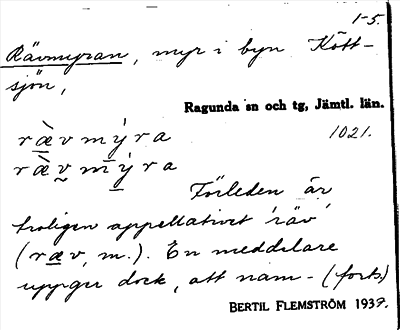 1-5.
Rävmyran, myr i byn Kött-
sjön,
Ragunda sn och tg, Jämtl. län.
1021.
ræ̀vmýra
ræ̀vmýra
Förleden är
troligen appellativet 'räv'
(ræv, m.). En meddelare
uppger dock, att nam- (forts)
BERTIL FLEMSTRÖM 1937.